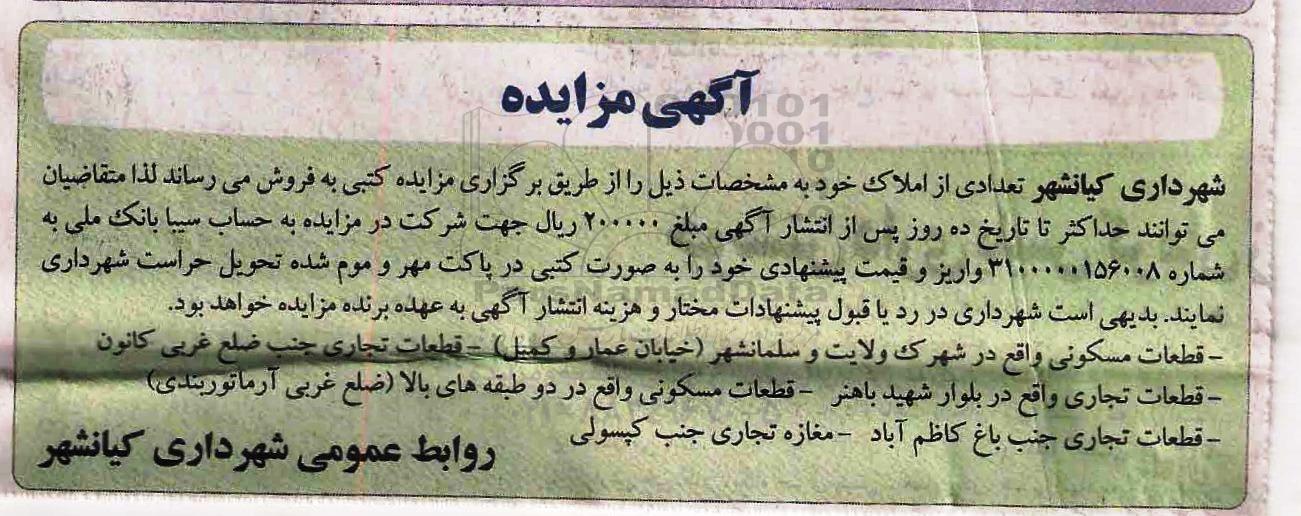 آگهی مزایده
شهرداری کیانشهر تعدادی از املاک خود به مشخصات ذیل را از طریق برگزاری مزایده کتبی به فروش می رساند لذا متقاضیان
می توانند حداکثر تا تاریخ ده روز پس از انتشار آگهی مبلغ ۲۰۰۰۰۰ ریال جهت شرکت در مزایده به حساب سیبا بانک ملی به
شماره ۳۱۰۰۰۰۰۱۵۶۰۰۸ واریز و قیمت پیشنهادی خود را به صورت کتبی در پاکت مهر و موم شده تحویل حراست شهرداری
نمایند. بدیهی است شهرداری در رد یا قبول پیشنهادات مختار و هزینه انتشار آگهی به عهده برنده مزایده خواهد بود.
- قطعات مسکونی واقع در شهرک ولایت و سلمانشهر (خیابان عمار و کمیل) - قطعات تجاری جنب ضلع غربی کانون
- قطعات تجاری واقع در بلوار شهید باهنر - قطعات مسکونی واقع در دو طبقه های بالا (ضلع غربی آرماتوربندی)
- قطعات تجاری جنب باغ کاظم آباد - مغازه تجاری جنب کپسولی
روابط عمومی شهرداری کیانشهر